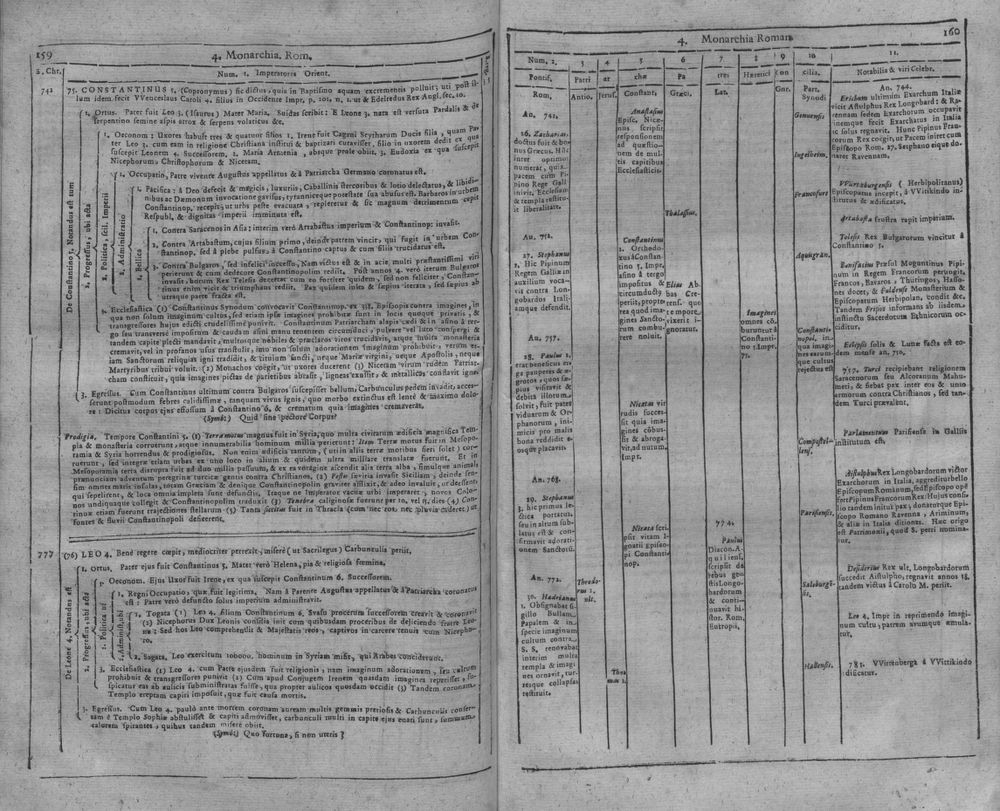 159
4. Monarchia. Rom.
à Chr.
Num. 1. Imperatores Orient.
742
75. CONSTANTINUS 5. (Copronymus) sic dictus, quia in Baptismo aquam excrementis polluit; uti post il-
lum idem fecit VVenceslaus Caroli 4. filius in Occidente Impr, p. 201, n. 1. ut & Edelredus Rex Angl. sec. 10.
1. Ortus. Pater fuit Leo 3. (Isaurus) Mater Maria. Suidas scribit: E Leone 3. nata est versuta Pardalis & de
serpentino semine aspis atrox & serpens volaticus &c.
1. Oeconom: Uxores habuit tres & quatuor filios 1. Irene fuit Cagani Scytharum Ducis filia, quam Pa-
ter Leo 3. cum eam in religione Christiana institui & baptizari curavisset, filio in uxorem dedit ex qua
suscepit Leonem 4. Successorem, 2. Maria Armenia, absque prole obiit. 3. Eudoxia ex qua suscepit
Nicephorum Christophorum & Nicetam.
1. Occupatio, Patre vivente Augustus appellatus & à Patriarcha Germano coronatus est.
1. Pacifica: à Deo defecit & magicis, luxuriis, Caballinis stercoribus & lotio delectatus, & libidi-
nibus ac Dæmonum invocatione gavisus, tyrannice que potestate sua abusus est. Barbaros in urbem
Constantinop. recepit, ut urbs peste evacuata, repleretur & sic magnum detrimentum cepit
Respubl. & dignitas imperii imminuta est.
1. Contra Saracenos in Asia; interim verò Artabastus imperium & Constantinop: invasit.
2. Contra Artabastum, cujus filium primo, deinde patrem vincit, qui fugit in urbem Con-
stantinop. sed à plebe pulsus, à Constantino captus & cum filiis trucidatus est.
3. Contra Bulgaros, sed infelici successu, Nam victus est & in acie multi præstantissimi viri
perierunt & cum dedecore Constantinopolim rediit. Post annos 4. verò iterum Bulgaros
invasit, horum Rex Telesis decertat cum eo fortiter quidem, sed non feliciter, Constan-
tinus enim vicit & triumphans rediit. Pax quidem inita & sæpius iterata, sed sæpius ab
utraque parte fracta est.
3. Ecclesiastica (1) Constantinus Synodum convocavit Constantinop. ex 338. Episcopis contra imagines, in
qua non solum imaginum cultus, sed etiam ipsæ imagines prohibitæ sunt in locis quoque privatis, &
transgressores hujus edicti crudelissimè punivit. Constantinum Patriarcham alapis cædi & in asino à ter-
go seu transversè impositum & caudam asini manu tenentem circumduci, pulvere vel luto conspergi &
tandem capite plecti mandavit, multosque nobiles & præclaros viros trucidavit, atque multa monasteria
cremavit, vel in profanos usus transtulit, imo non solum adorationem imaginum prohibuit, verum et-
iam Sanctorum reliquias igni tradidit, & titulum sancti, neque Mariæ virgini, neque Apostolis, neque
Martyribus tribui voluit. (2) Monachos coëgit, ut uxores ducerent (3) Nicetam virum rudem Patriar-
cham constituit, quia imagines pictas de parietibus abrasit, ligneas exussit & metallicas conflavit igni.
3. Egressus. Cum Constantinus ultimum contra Bulgaros suscepisset bellum, Carbunculus pedem invadit, acces-
serunt postmodum febres calidissimæ, tanquam vivus ignis, quo morbo extinctus est lente & maximo dolo-
re: Dicitur corpus ejus effossum à Constantino 6, & crematum quia imagines cremaverat.
(Symb:) Quid sine pectore Corpus?
Prodigia. Tempore Constantini 5. (1) Terræ motus magnus fuit in Syria, quo multa civitatum ædificia magnifica Tem-
pla & monasteria corruerunt, atque innumerabilia hominum millia perierunt: Item Terræ motus fuit in Mesopo-
tamia & Syria horrendus & prodigiosus. Non enim ædificia tantum, (uti in aliis terræ motibus fieri solet) cor-
ruerunt, sed integræ etiam urbes ex uno loco in alium & quidem ultra milliare translatæ fuerunt. Et in
Mesopotamia terra disrupta fuit ad duo millia passuum, & ex ea voragine ascendit alia terra alba, simulque animals
prænunciant adventum peregrinæ turcicæ gentis contra Christianos, (2) Pestis sævitia invasit Siciliam, deinde sen-
sim omnes maris insulas, totam Græciam & denique Constantinopolin graviter afflixit, & adeo invaluit, ut deessent
qui sepelirent, & loca omnia impleta sunt defunctis. Itaque ne Imperator vacuæ urbi imperaret; novos Colo-
nos undiquaque collegit & Constantinopolim traduxit (3) Tenebræ caliginosæ fuerunt per 10, vel 11, dies (4) Con-
tinuæ etiam fuerunt trajectiones stellarum (5) Tanta siccitas fuit in Thracia (cum nec ros, nec pluvia caderet) ut
fontes & fluvii Constantinopoli deficerent.
777
(76) LEO 4. Bene regere cœpit, mediocriter perrexit, miserè (ut Sacrilegus) Carbunculis periit.
1. Ortus. Pater ejus fuit Constantinus 5. Mater verò Helena, pia & religiosa fœmina.
1. Oeconom. Ejus Uxor fuit Irene, ex qua suscepit Constantinum 6. Successorem.
1. Regni Occupatio, quæ fuit legitima. Nam à Parente Augustus appellatus & à Patriarcha coronatus
est: Patre verò defuncto solus imperium administravit.
1. Togata (1) Leo 4. filium Constantinum 6. Svasu procerum successorem creavit & coronavit
(2) Nicephorus Dux Leonis consilia init cum quibusdam proceribus de dejiciendo fratre Leo-
ne: Sed hos Leo comprehendit & Majestatis reos, captivos in carcere tenuit cum Nicepho-
ro.
2. Sagata, Leo exercitum 100000. hominum in Syriam misit, qui Arabes conciderunt.
3. Ecclesiastica (1) Leo 4. cum Patre ejusdem fuit religionis, nam imaginum adorationem, seu cultum
prohibuit & transgressores punivit (2) Cum apud Conjugem Irenem quasdam imagines reperisset, su-
spicatus eas ab aulicis subministratas fuisse, qua propter aulicos quosdam occidit (3) Tandem coronam
Templo ereptam capiti imposuit, quæ fuit causa mortis.
3. Egressus. Cum Leo 4. paulò ante mortem coronam auream multis gemmis preciosis & Carbunculis confer-
tam è Templo Sophiæ abstulisset & capiti admovisset, carbunculi multi in capite ejus enati sunt, summum
calorem spirantes, quibus tandem miserè obiit.
(Symb:) Quo fortuna, si non uteris?
De Constantino 5. Notandus est
2. Progressus, ubi acta
2. Politica, scil. Imperii
2. Administratio
2. Bellica
De Leone 4. Notandus est
2. Progressus, ubi acta
2. Politica ubi
2. Administr. ubi
4. Monarchia Roman.
160
Num. 2.
3
4
5
6
7
8
9
10
11.
Pontif.
Patri
ar
chæ
Pa
tres
Hæretici
Con
cilia.
Notabilia & viri Celebr.
Rom.
Antio.
Jeruf.
Constant.
Græci.
Lat.
Gnr.
Part.
Synodi
An. 742.
26. Zacharias
doctus fuit & bo-
nus Græcus. Hic
inter optimos
numerat, quia
pacem cum Pi-
pino Rege Gall.
inivit. Ecclesias
& templa restitu-
it liberalitate.
An. 752.
27. Stephanus
2. Hic Pipinum
Regem Galliæ in
auxilium voca-
vit contra Lon-
gobardos Itali-
amque defendit.
An. 757.
28. Paulus 1.
erat beneficus er-
ga pauperes & æ-
grotos, quos sæ-
pius visitavit &
debita illorum
solvit, fuit pater
viduarum & Or-
phanorum, ini-
micis pro malis
bona reddidit e-
osque placavit.
An. 768.
29. Stephanus
3. hic primus le-
ctica portatus,
seu in altum sub-
latus est & con-
firmavit adorati-
onem Sanctorū.
An. 772.
30. Hadrianus
1. Obsignabat si-
gillo Bullam
Papalem & in-
specie imaginum
cultum contra
S. S. renovabat
interim multa
templa & imagi-
nes ornavit, tur-
resque collapsas
restituit.
Theodo-
rus 1.
ult.
Theo
mas 1.
Anastasius
Episc. Nice-
nus scripsit
responsionem
ad quæstio-
nem de mul-
tis capitibus
Ecclesiasticis.
Constantinus
1. Orthodo-
xus à Constan-
tino 5. Impr.
asino à tergo
impositus &
circumductº
per itt, propte-
rea quod ima-
gines Sancto-
rum combu-
rere noluit.
Nicetas vir
rudis succes-
sit quia ima-
gines cōbus-
sit & abroga-
vit, ad nutum
Impr.
Nicetas scri-
psit vitam I-
gnatii Episco-
pi Constanti-
nop.
Thalassius.
Elias Ab-
bas Cre-
tens. quo
vixerit i-
gnoratur.
774.
Paulus
Diacon. A-
quiliens,
scripsit de
rebus ge-
stis Longo-
bardorum
& conti-
nuavit hi-
stor. Rom.
Eutropii.
Imagines
omnes cō-
burunt à
Constanti-
no 5. Impr.
75.
Genuensis
Ingelheim.
Francofurt.
Aquisgran.
Constanti-
nopol. in-
qua imagi-
nes earum-
que cultus
rejectus est
Compostel-
lens.
Parisiensis.
Salzburgi-
ens.
Hallensis.
An. 744.
Erichum ultimum Exarchum Italiæ
vicit Aistulphus Rex Longobard: & Ra-
vennam sedem Exarchorum occupavit
finemque fecit Exarchatus in Italia
ac solus regnavit. Hunc Pipinus Fran-
corum Rex coëgit, ut Pacem iniret cum
Episkopo Rom. 27. Stephano eique do-
naret Ravennam.
VVurtzburgensis (Herbipolitanus)
Episcopatus incepit, à VVittikindo in-
stitutus & ædificatus.
Artabasta frustra rapit imperium.
Telesis Rex Bulgarorum vincitur à
Constantino 5.
Bonifacius Præsul Moguntinus Pipi-
num in Regem Francorum perungit,
Francos, Bavaros, Thuringos, Hasso-
nes docet, & Fuldense Monasterium &
Episcopatum Herbipolan. condit &c.
Tandem Frisios informans ab iisdem
instinctu Sacerdotum Ethnicorum oc-
ciditur.
Eclypsis solis & Lunæ facta est eo-
dem mense an. 750.
757. Turci recipiebant religionem
Saracenorum seu Alcoranum Mahu-
meti, & siebat pax inter eos & unio
armorum contra Christianos, sed tan-
dem Turci prævalent.
Parlamentum Parisiense in Galliis
institutum est.
Aistulphus Rex Longobardorum victor
Exarchorum in Italia, aggreditur bello
Episcopum Romanum, sed Episcopo opē
fert Pipinus Francorum Rex: Hujus consi-
lio tandem initur pax, donatur que Epi-
scopo Romano Ravenna, Ariminum,
& alia in Italia ditiones. Hæc origo
est Patrimonii, quod S. petri nomina-
tur.
Desiderius Rex ult, Longobardorum
succedit Aistulpho, regnavit annos 18,
tandem victus à Carolo M. periit.
Leo 4. Impr in reprimendo imagi-
num cultu, patrem avumque æmula-
tur.
781. VVittenberga à VVittikindo
ædificatur.